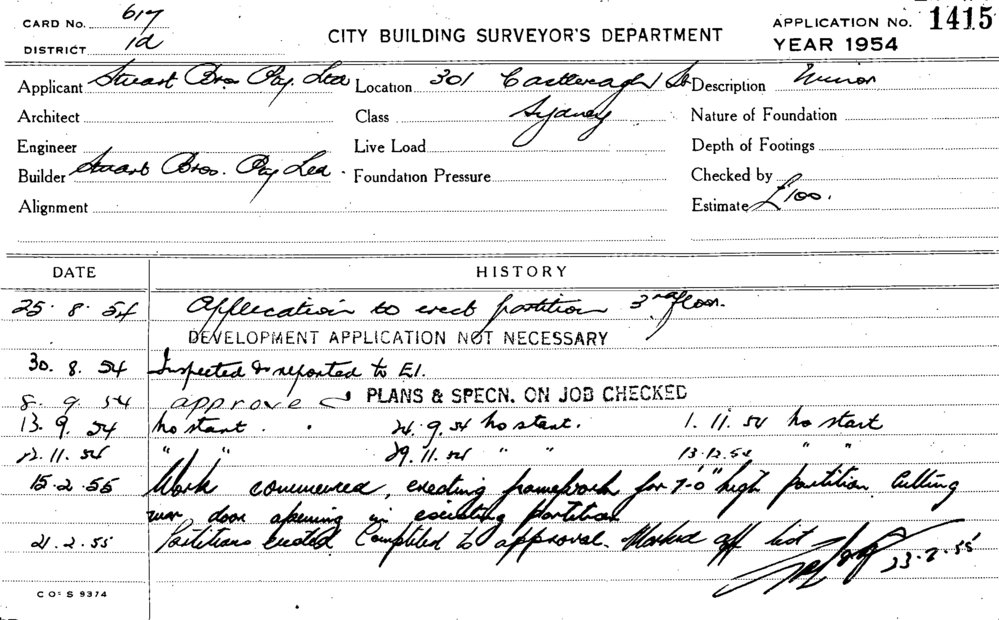 CARD No. 617
DISTRICT 1d
CITY BUILDING SURVEYOR'S DEPARTMENT
APPLICATION No. 1415
YEAR 1954
Applicant Stuart Bros Pty. Ltd Location 301 Castlereagh St Description Minor
Architect Class Sydney Nature of Foundation
Engineer Live Load Depth of Footings
Builder Stuart Bros. Pty Ltd. Foundation Pressure Checked by
Alignment Estimate £100.
DATE HISTORY
25.8.54 Application to erect partition 3rd floor.
DEVELOPMENT APPLICATION NOT NECESSARY
30.8.54 Inspected & reported to E1.
8.9.54 approve PLANS & SPECN. ON JOB CHECKED
13.9.54 No start. 24.9.54 No start. 1.11.54 No start
12.11.54 " " 29.11.54 " " 13.12.54 " "
15.2.55 Work commenced, erecting framework for 7'-0" high partition Cutting
new door opening in existing partition
21.2.55 Partitions ended Completed to approval. Marked off list
23.2.55
CO: S 9374